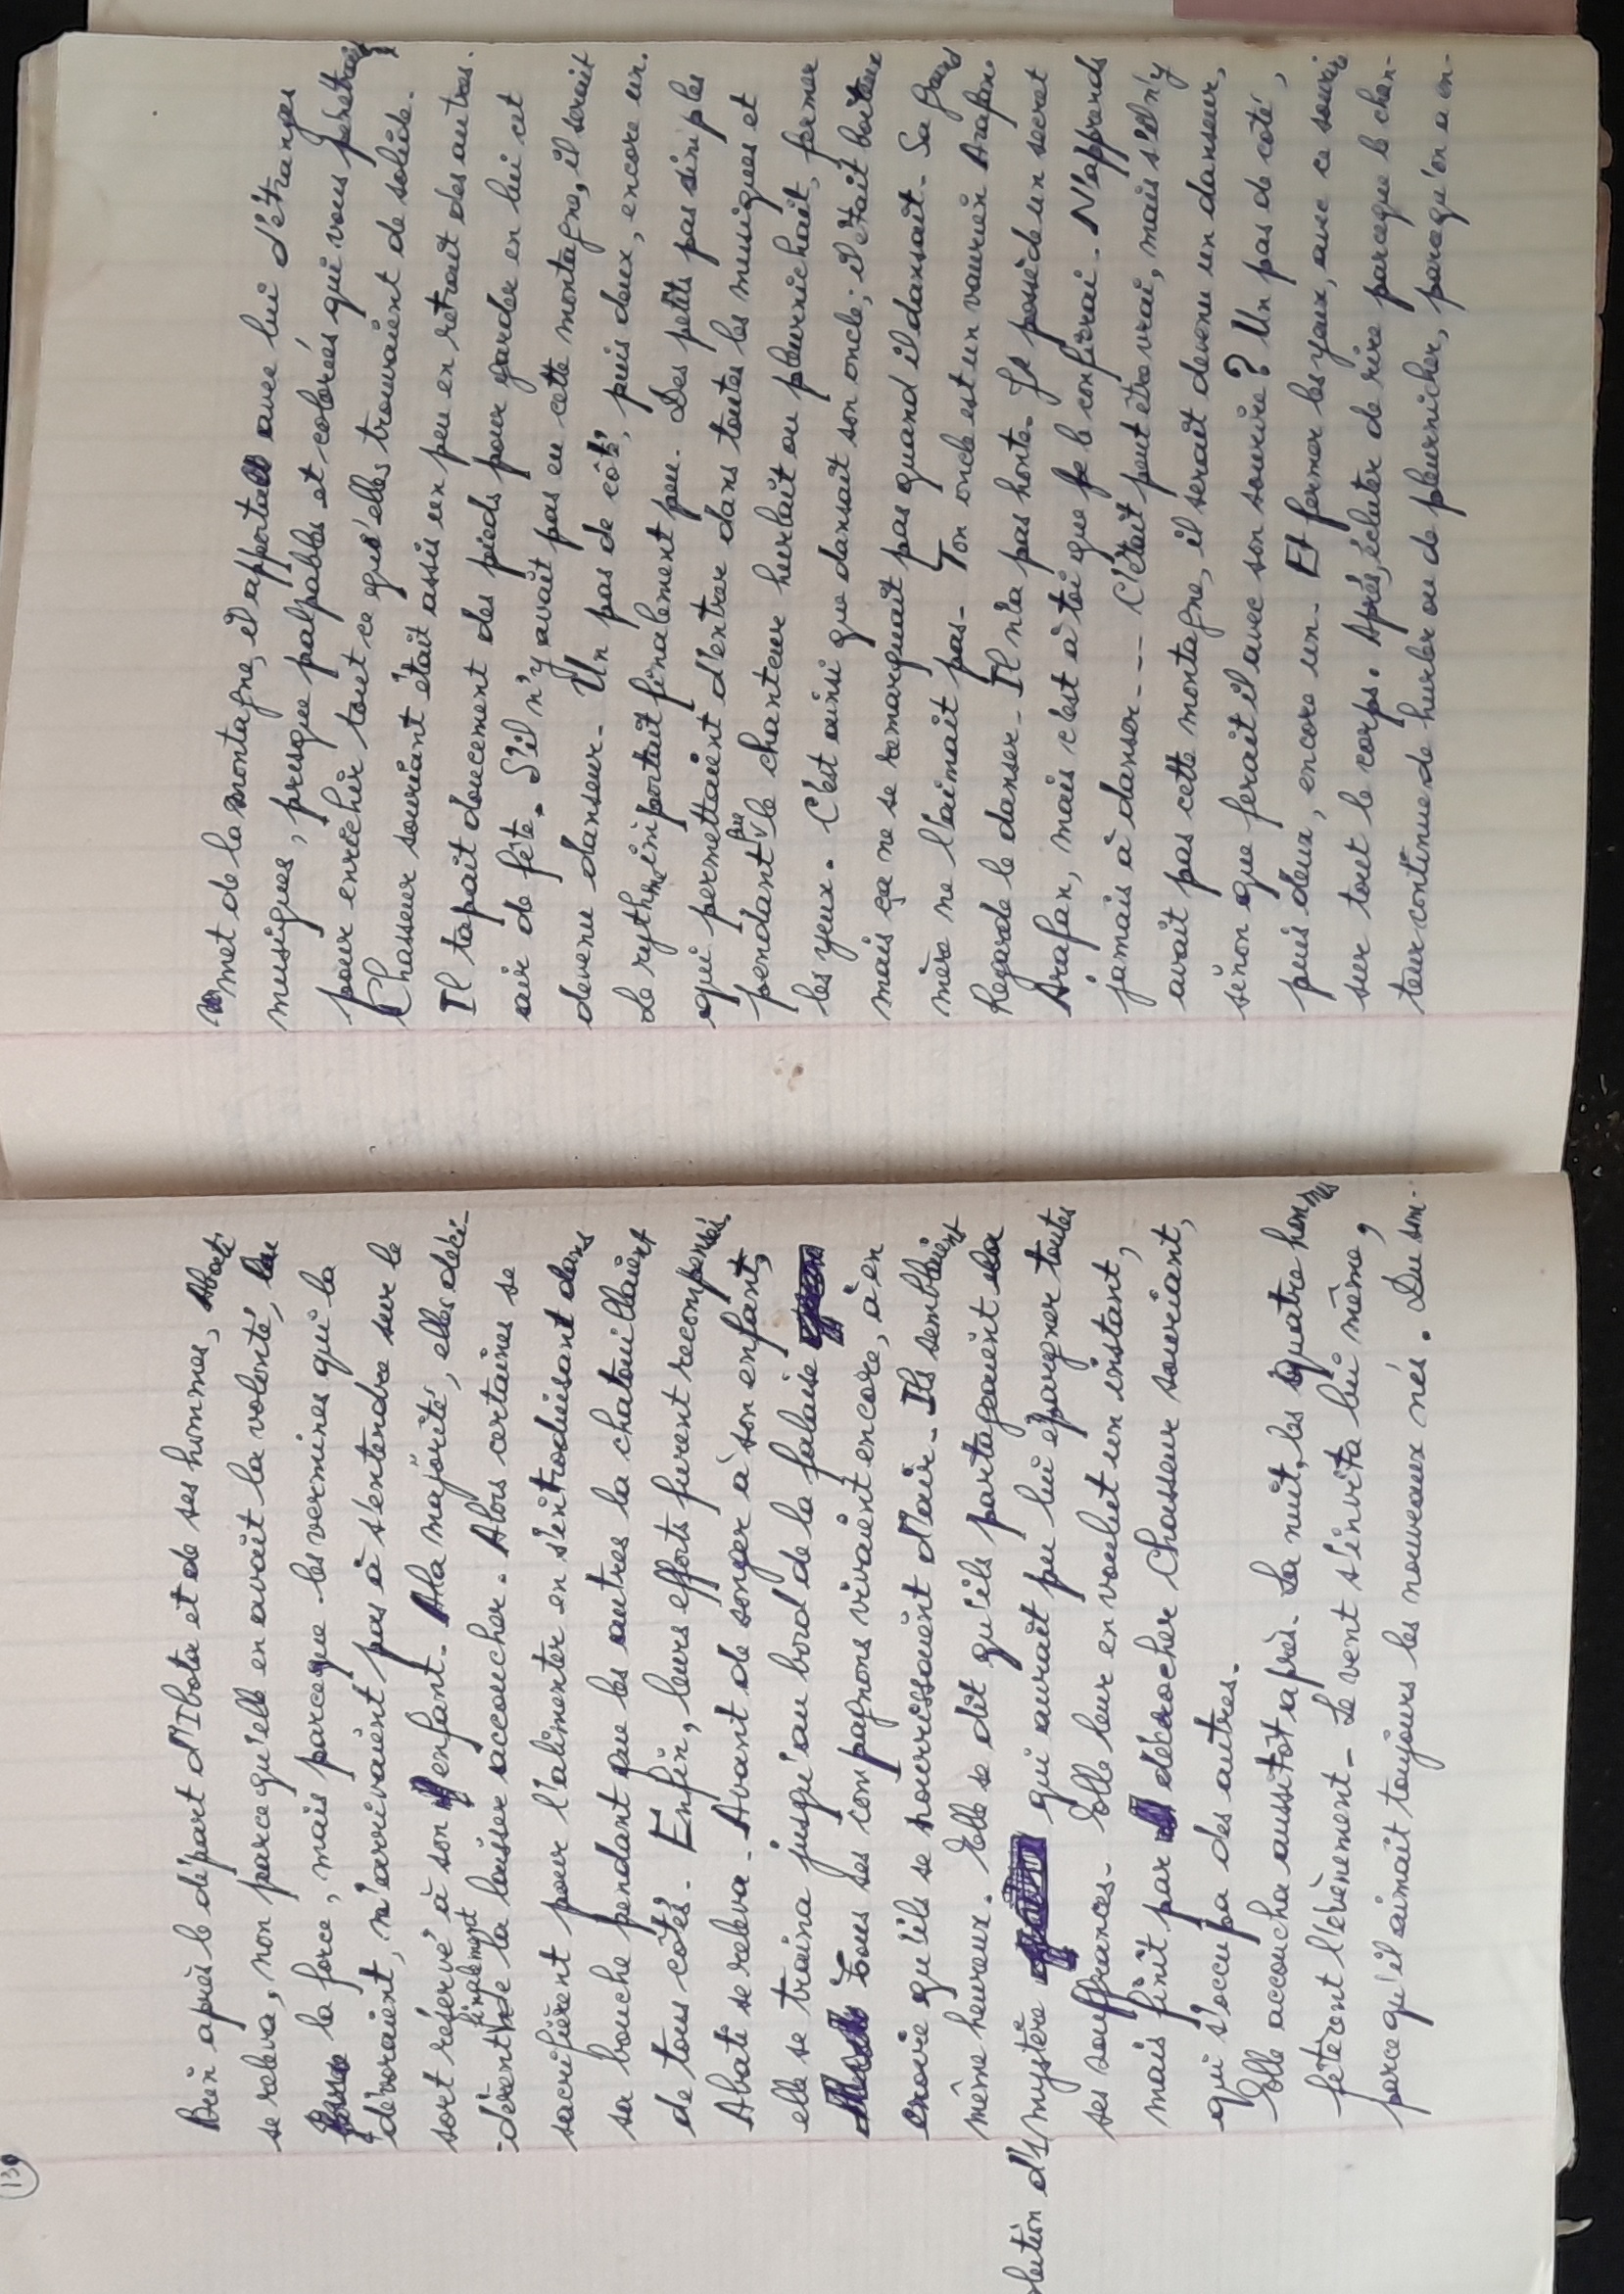 130
Bien après le départ d'Ibota et de ses hommes, Abati
se releva, non parcequ'elle en avait la volonté, la
la force, mais parceque les vermines qui la
dévoraient, n'arrivaient pas à s'entendre sur le
sort réservé à son enfant. A la majorité, elles déci-
-dèrent finalement de la laisser accoucher. Alors certaines se
sacrifièrent pour l'alimenter en s'introduisant dans
sa bouche pendant que les autres la chatouillaient
de tous cotés. Enfin, leurs efforts furent recompensés.
Abati se releva. Avant de songer à son enfant,
elle se traina jusqu'au bord de la falaise
Tous ses compagnons vivaient encore, à en
croire qu'ils se nourrissaient d'air. Ils semblaient
même heureux. Elle se dit qu'ils partageaient la
solution d'1 mystère qui aurait pu lui épargner toutes
ses souffrances. Elle leur en voulut un instant,
mais finit par décrocher Chasseur souriant,
qui s'occupa des autres.
Elle accoucha aussitôt après. La nuit, les quatre hommes
fêtèrent l'évènement. Le vent s'invita lui même,
parce qu'il aimait toujours les nouveaux nés. Du som-
met de la montagne, il apporta avec lui d'étranges
musiques, presque palpables et colorées qui vous pénétraient
pour enrichir tout ce qu'elles trouvaient de solide.
Chasseur souriant était assis un peu en retrait des autres.
Il tapait doucement des pieds pour garder en lui cet
air de fête. S'il n'y avait pas eu cette montagne, il serait
devenu danseur. Un pas de côté, puis deux, encore un.
Le rythme importait finalement peu. Des petits pas simples
qui permettaient d'entrer dans toutes les musiques et
pendant que le chanteur hurlait ou pleurnichait, fermer
les yeux. C'est ainsi que dansait son oncle; il était boiteux
mais ça ne se remarquait pas quand il dansait. Sa grand
mère ne l'aimait pas. Ton oncle est un vaurien Arafan.
Regarde le danser. Il n'a pas honte. Je possède un secret
Arafan, mais c'est à toi que je le confierai. N'apprends
jamais à danser... C'était peut être vrai, mais s'il n'y
avait pas cette montagne, il serait devenu un danseur,
sinon que ferait il avec son sourire? Un pas de coté,
puis deux, encore un. Et fermer les yeux, avec ce sourire
sur tout le corps. Après, éclater de rire parceque le chan-
teur continue de hurler ou de pleurnicher, parcequ'on a en-